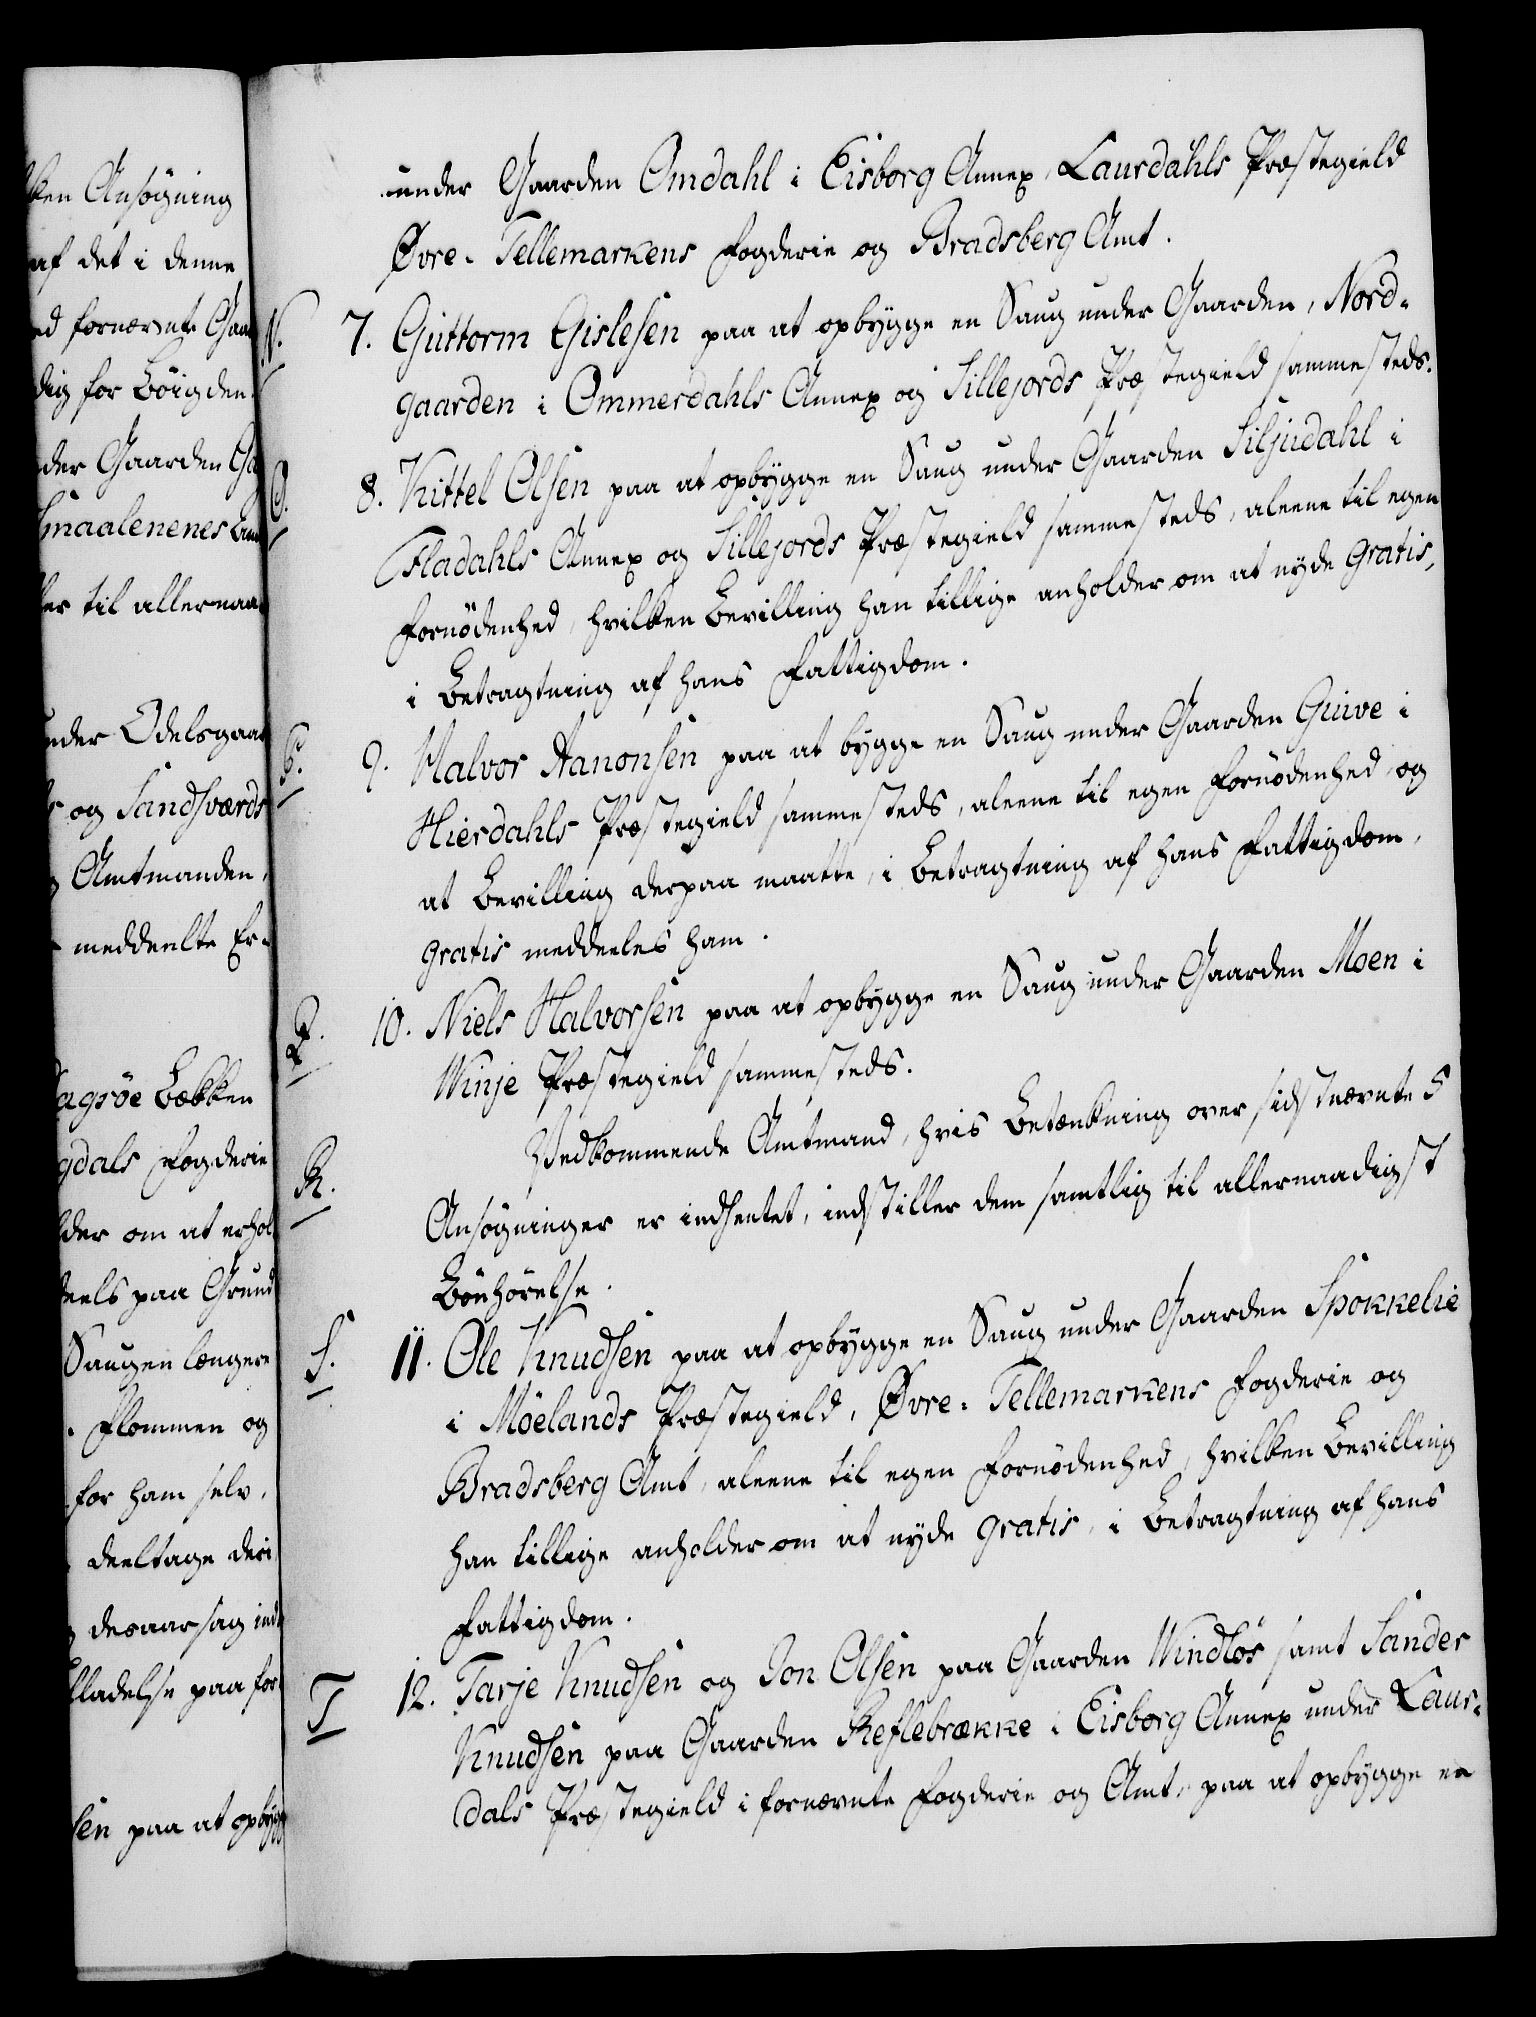 ken Ansøgning
af det i denne
fornævnte Gaa
dig for Böigden
der Gaarden
Smaalenenes
ter til allernaa
under Odelsgaar
og Sandsværds
Amtmanden,
meddeelte Er-
agröe Bækken
gdals Fogderie
lder om at erhol
deels paa Grund
Saugen længere
Flommen og
for ham selv,
deeltage deri
desaarsag ind
lladelse paa for
sen paa at opbyg
under Gaarden Omdahl i Eisborg Annex, Laurdahls Præstegield
Øvre-Tellemarkens Fogderie og Bradsberg Amt.
N. 7. Guttorm Gislesen paa at opbygge en Saug under Gaarden, Nord-
gaarden i Ommerdahls Annex og Sillejords Præstegield sammesteds.
O. 8. Kittel Olsen paa at opbygge en Saug under Gaarden Siljudahl i
Fladahls Annex og Sillejords Præstegield sammesteds, aleene til egen
Fornödenhed, hvilken Bevilling han tillige anholder om at nyde gratis,
i Betragtning af hans Fattigdom.
P. 9. Halvor Aanonsen paa at bygge en Saug under Gaarden Guive i
Hierdahls Præstegield sammesteds, aleene til egen Fornödenhed, og
at Bevilling derpaa maatte, i Betragtning af hans Fattigdom,
gratis meddeeles ham.
Q. 10. Niels Halvorsen paa at opbygge en Saug under Gaarden Moen i
Winje Præstegield sammesteds.
R. Vedkommende Amtmand, hvis Betænkning over sidstnævnte 5
Ansøgninger er indhentet, indstiller dem samtlig til allernaadigst
Bönhörelse.
S. 11. Ole Knudsen paa at opbygge en Saug under Gaarden Spokkelie
i Möelands Præstegield, Øvre-Tellemarkens Fogderie og
Bradsberg Amt, aleene til egen Fornödenhed, hvilken Bevilling
han tillige anholder om at nyde gratis, i Betragtning af hans
Fattigdom.
T 12. Tarje Knudsen og Jon Olsen paa Gaarden Windlös samt Sander
Knudsen paa Gaarden Reflebrække i Eisborg Annex under Laur-
dals Præstegield i fornævnte Fogderie og Amt, paa at opbygge en